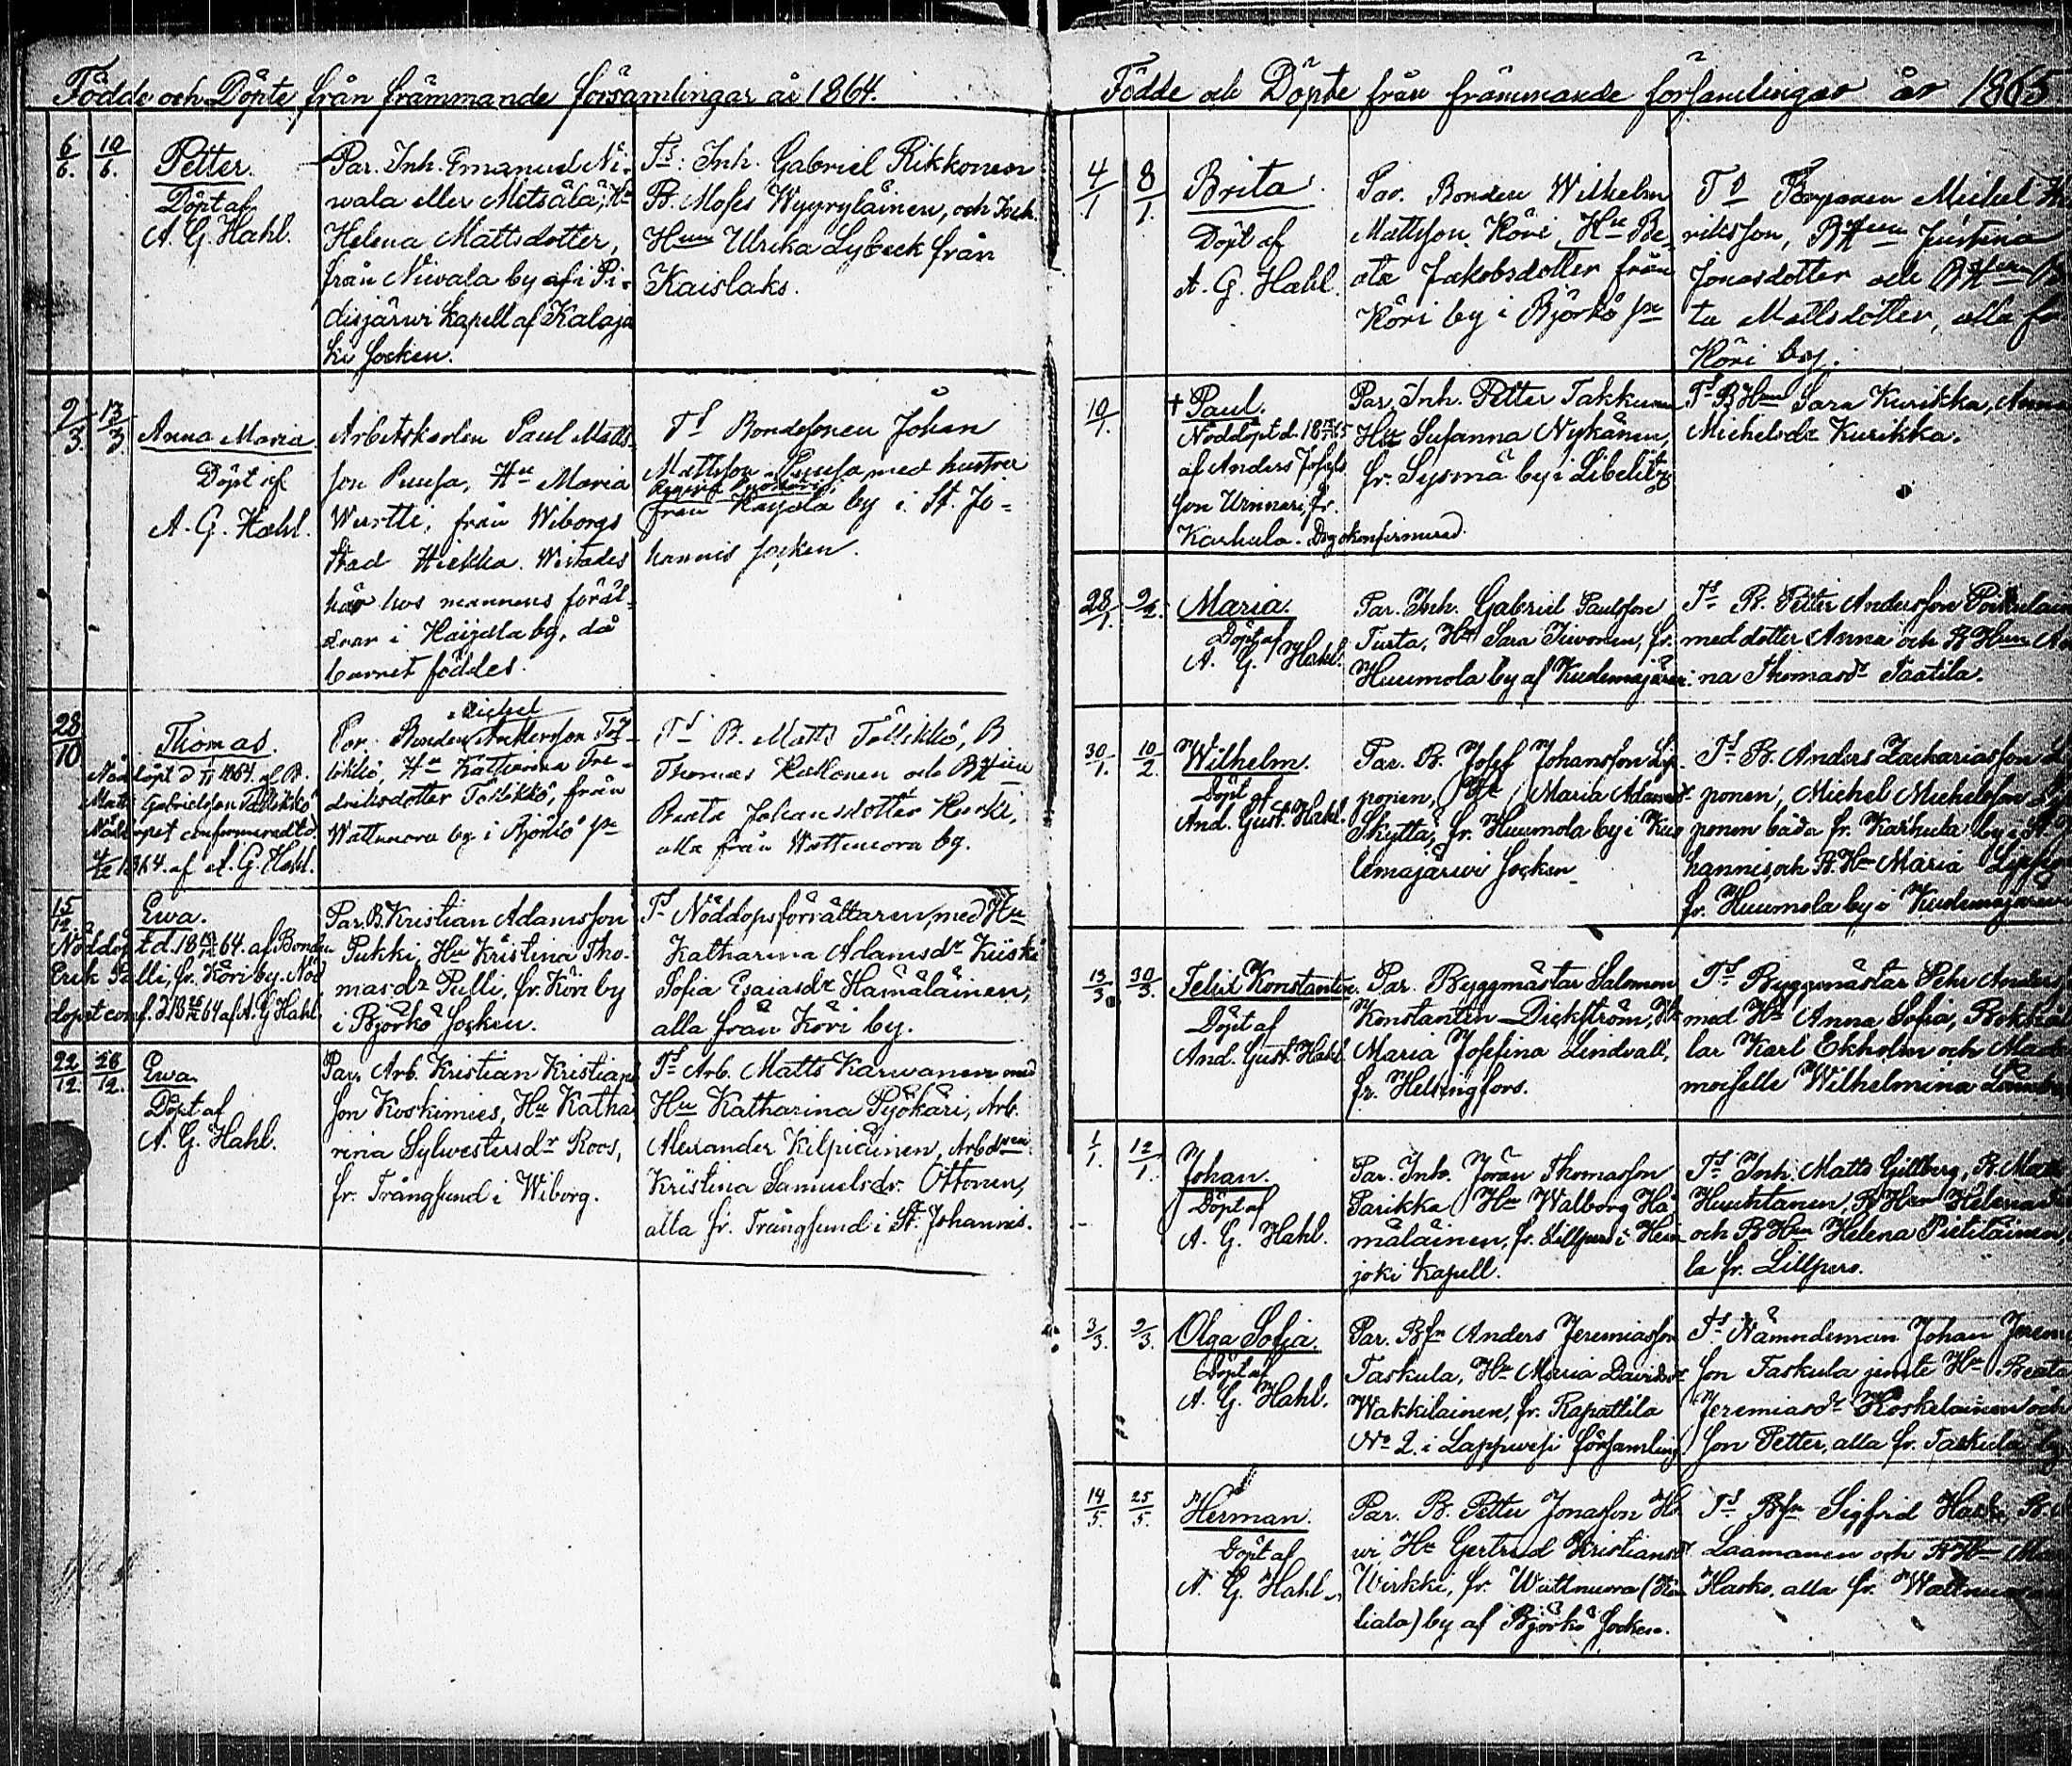 Födde och Döpte från främmande församlingar år 1864.
6/6. 10/6. Petter.
Döpt af
A. G. Hahl.
Par. Inh. Emanuel Ni-
wala eller Metsälä, Hu
Helena Mattsdotter,
från Niwala by af i Pi-
disjärwi Kapell af Kalajo
ki Socken.
Ts: Inh. Gabriel Rikkonen
B. Moses Wyyryläinen, och Inh.
Hun Ulrika Lybeck från
Kaislaks.
9/3. 13/3. Anna Maria
Döpt af
A. G. Hahl.
Arbetskarlen Paul Matts-
son Puusa, Hu Maria
Wirtti, från Wiborgs
stad Hiekka. Wistades
här hos mannens föräl-
drar i Kaijala by, då
barnet föddes.
Ts Bondesonen Johan
Mattsson Puusa med hustru
från Kaijala by i St. Jo-
hannis Socken.
28/10 Thomas.
Nöddöpt d 1864. af B.
Matts Gabrielsson Töllikkö
Nöddopet confirmeradt d.
1864. af A. G. Hahl.
Par. Bonden Michel Andersson Töl-
likkö, Hu Katharina Fre-
driksdotter Töllikkö, från
Wattnuora by i Björkö sn
Ts B. Matts Töllikkö, B
Thomas Hakonen och BHun
Beata Johansdotter Hoikki,
alla från Wattnuora by.
15/12. Ewa.
Nöddöpt d. 18 64. af Bonden
Erik Pulli, fr. Köri by. Nöd
dopet conf. d. 18 64 af A. G. Hahl.
Par. B. Kristian Adamsson
Pukki, Hu Kristina Tho-
masdr Pulli, fr. Köri by
i Björkö Socken.
Ts Nöddopsförrättaren, med Hu
Katharina Adamsdr Kiiski
Sofia Esaiasdr Hämäläinen,
alla från Köri by.
22/12. 26/12. Ewa.
Döpt af
A. G. Hahl.
Par. Arb. Kristian Kristians
son Koskimies, Hu Katha
rina Sylwestersdr Roos,
fr. Trångsund i Wiborg.
Ts Arb. Matts Karwanen med
Hu Katharina Pyökäri, Arb.
Alexander Kilpiäinen,
Kristina Samuelsdr. Ottonen,
alla fr. Trångsund i St. Johannis.
Födde och Döpte från främmande församlingar år 1865
4/1 8/1. Brita.
Döpt af
A. G. Hahl.
Par. Bonden Wilhelm
Mattsson Köri Hu Be-
ata Jakobsdotter från
Köri by i Björkö sn
Ts Michel
riksson, BHun Justina
Jonasdotter och BHun
ta Mattsdotter, alla
Köri by.
10/1. † Paul.
Nöddöpt d. 18 65
af Anders Josefs
son Urmari, fr.
Karhula. Dog okonfirmerad.
Par. Inh. Petter Takkunen
Hu Susanna Nykänen,
fr. Sysmä by i Libelitz
Ts BHun Sara Kurikka, Anna
Michelsdr Kurikka.
28/1. 9/2. Maria.
Döpt af
A. G. Hahl.
Par. Inh. Gabriel Paulsson
Turta, Hu Sara Tiwonen, fr.
Huumola by af Kuolemajärwi
Ts B. Petter Andersson
med dotter Anna och BHun
na Thomasdr Taatila.
30/1. 10/2. Wilhelm.
Döpt af
And. Gust. Hahl.
Par. B. Josef Johansson Lip-
ponen, Hu Maria Adamsdr
Skyttä, fr. Huumola by i Kuo
lemajärwi Socken
Ts B. Anders Zachariasson
ponen, Michel Michelsson
ponen båda fr. Karhula by i St
hannis och BHu Maria
fr. Huumola by i Kuolemajärwi
13/3. 30/3. Felix Konstantin.
Döpt af
And. Gust. Hahl.
Par. Byggmästar Salomon
Konstantin Dickström, Hu
Maria Josefina Lindvall,
fr. Helsingfors.
Ts Byggmästar Pehr Anders
med Hu Anna Sofia,
lar Karl Ekholm och Made
moiselle Wilhelmina
1/1. 12/1. Johan.
Döpt af
A. G. Hahl.
Par. Inh. Jöran Thomasson
Parikka Hu Walborg Hä
mäläinen, fr. Lillpero i Hein
joki Kapell.
Ts Inh. Matts Gillberg, B.
Huuhtanen, BHun Helena
och BHun Helena Pietiläinen,
la fr. Lillpero.
3/3. 9/3. Olga Sofia.
Döpt af
A. G. Hahl.
Par. Bsn Anders Jeremiasson
Taskula, Hu Maria Davidsdr
Wakkilainen, fr. Rapattila
No 2. i Lappwesi församling.
Ts Nämndeman Johan Jerem
son Taskula jemte Hu Beata
Jeremiasdr Koskelainen och
son Petter, alla fr. Taskula by
14/5. 25/5. Herman.
Döpt af
A. G. Hahl.
Par. B. Petter Jonasson
wi Hu Gertrud Kristiansdr
Wirkki, fr. Wattnuora
liala) by af Björkö Socken.
Ts Bsn Sigfrid
Laamanen och BHun
alla fr. Wattnuora